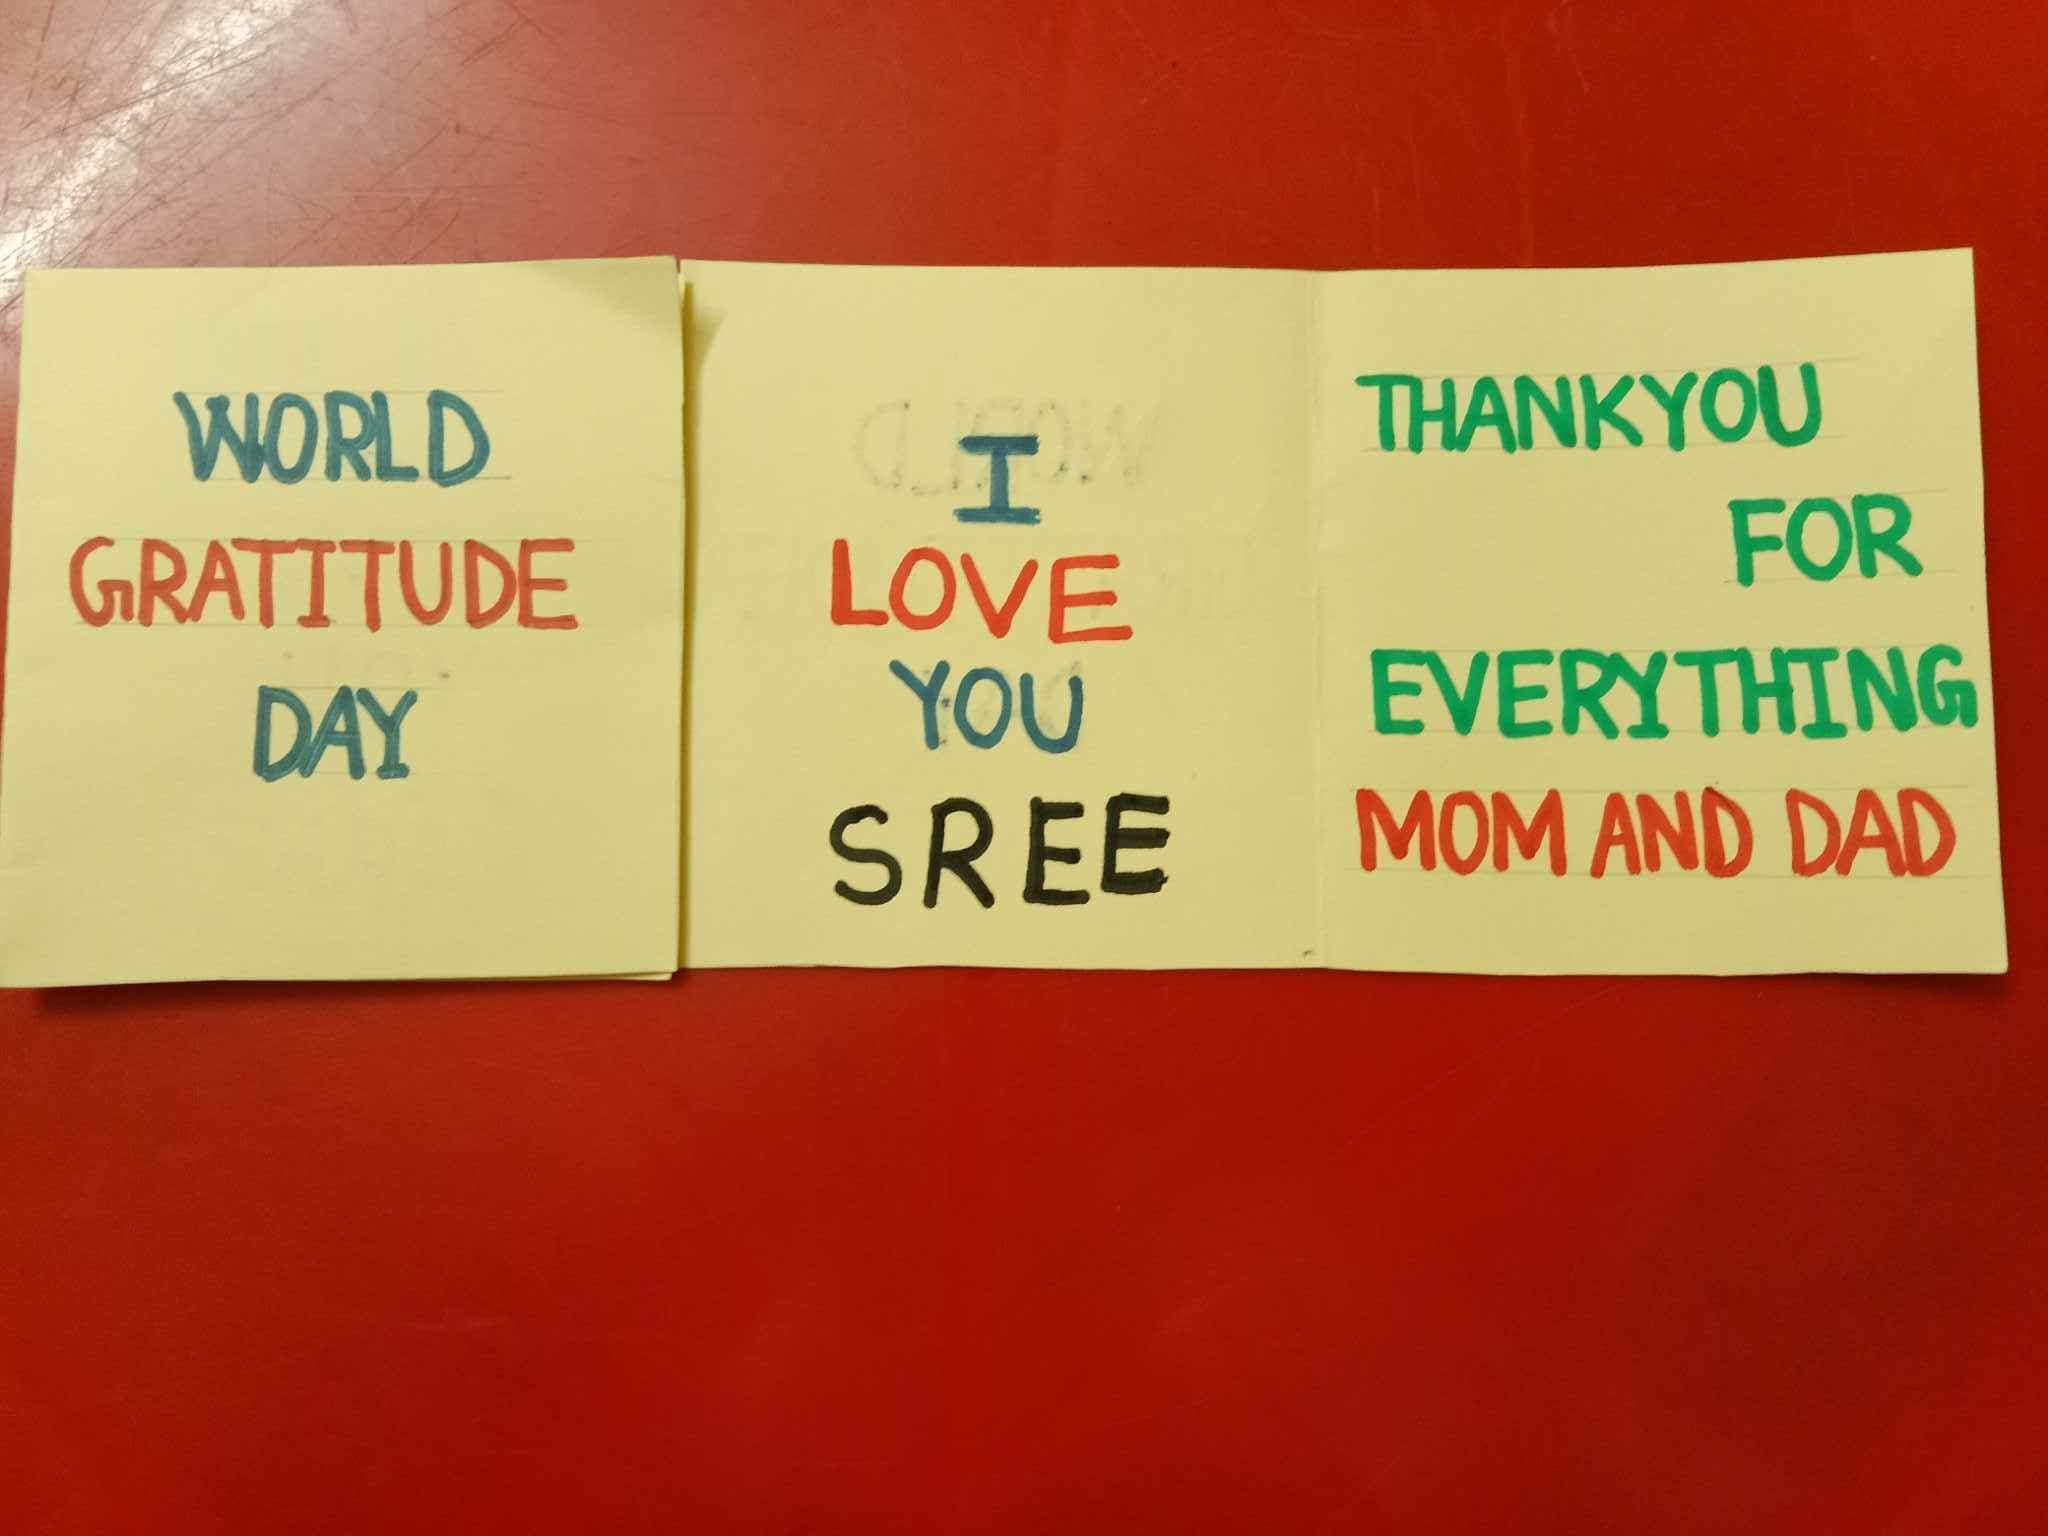 WORLD
GRATITUDE
DAY
I
LOVE
YOU
SREE
THANKYOU
FOR
EVERYTHING
MOM AND DAD